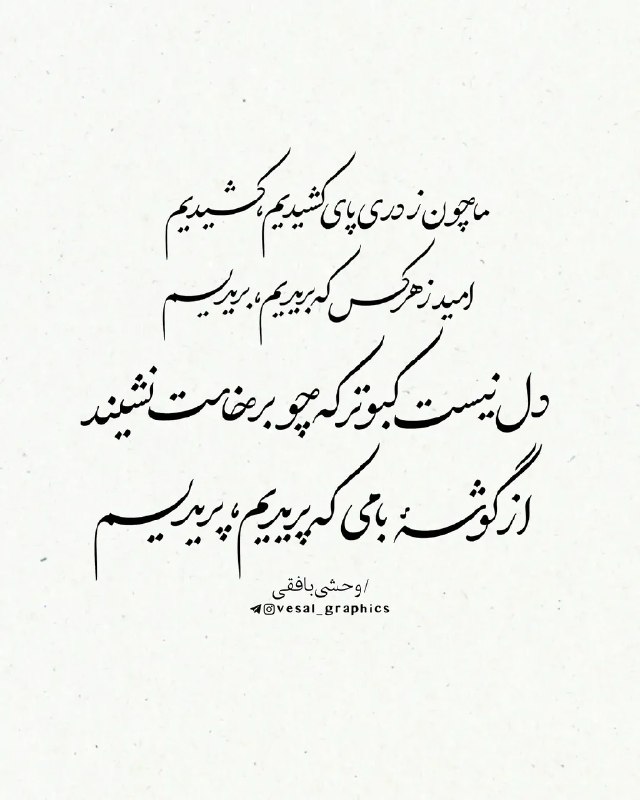 ما چون ز دری پای کشیدیم، کشیدیم
امید ز هر کس که بریدیم، بریدیم
دل نیست کبوتر که چو برخاست نشیند
از گوشهٔ بامی که پریدیم، پریدیم
/وحشی بافقی
vesal_graphics